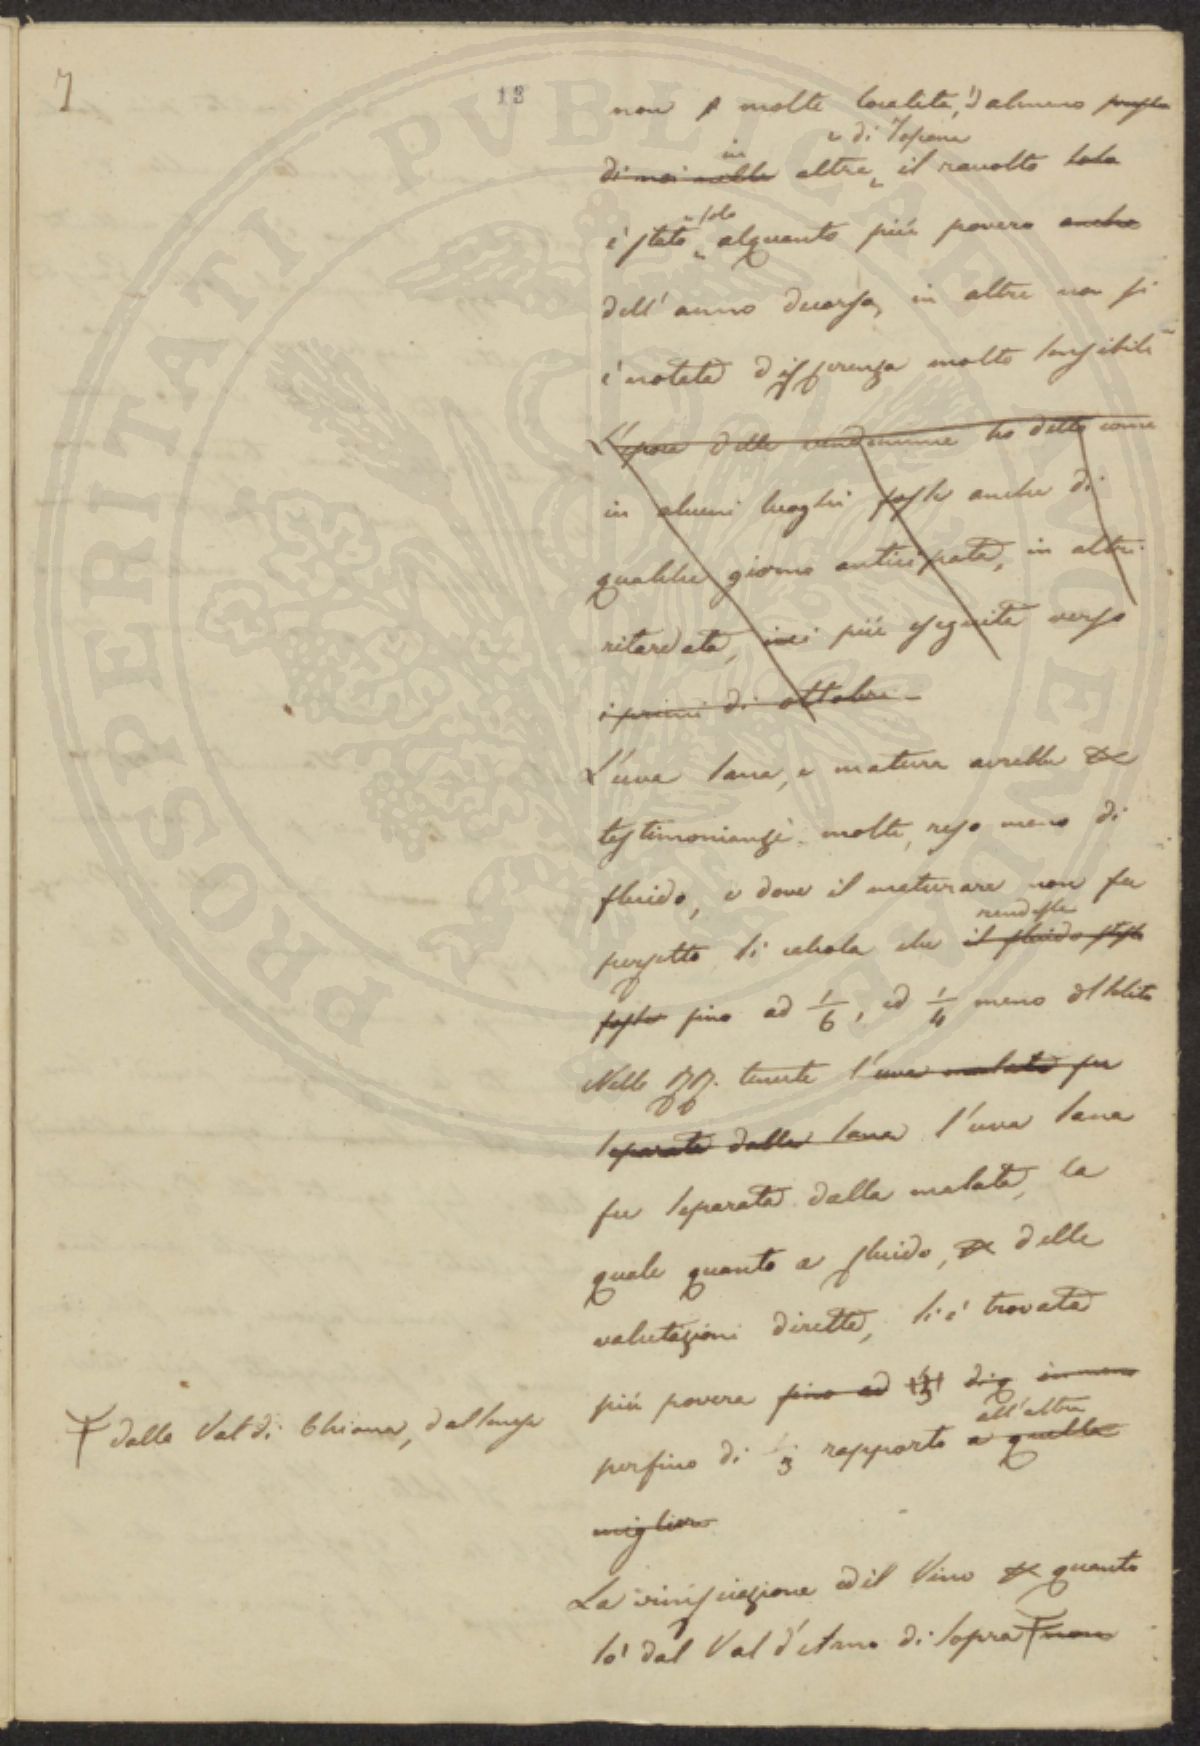 7
13
non p molte localita, d'almeno
in e di Toscana
di noi nelle altre, il racolto
e solo
è stato alquanto più povero anche
dell'anno decorso, in altre non si
è notata differenza molto sensibile
L'epoca delle vendemmie ho detto come
in alcuni luoghi fosse anche di
qualche giorno anticipata, in altri
ritardata, i più eseguita verso
i primi di ottobre –
L'uva sana, e matura avrebbe
testimonianze molte, reso meno di
fluido, e dove il maturare non fu
rendesse
perfetto si calcola che il fluido stesso
fosse fino ad 1/6, ed 1/4 meno del solito
Nelle tenute l'uva malata fu
separata dalla sana l'uva sana
fu separata dalla malata, la
quale quanto a fluido, delle
valutazioni dirette, si è trovata
più povera fino ad 1/3 in meno
all'altra
perfino di 1/3 rapporto a quella
migliore
La vinificazione ed il Vino quanto
so' dal Val d'Arno di sopra non
dalla Val di Chiana, dal
PROSPERITATI PVBLICAE